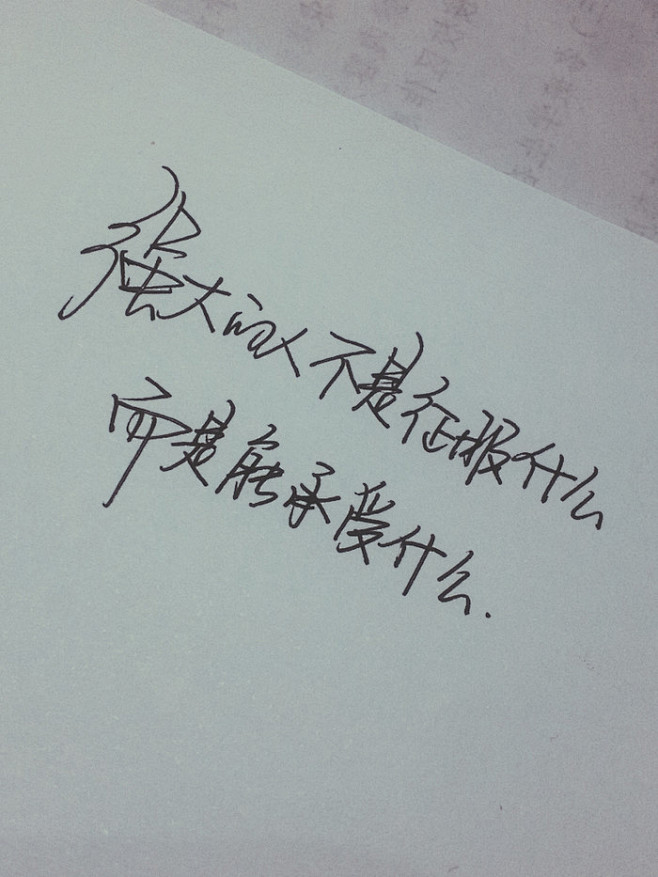 强大的人不是征服什么
而是能承受什么.